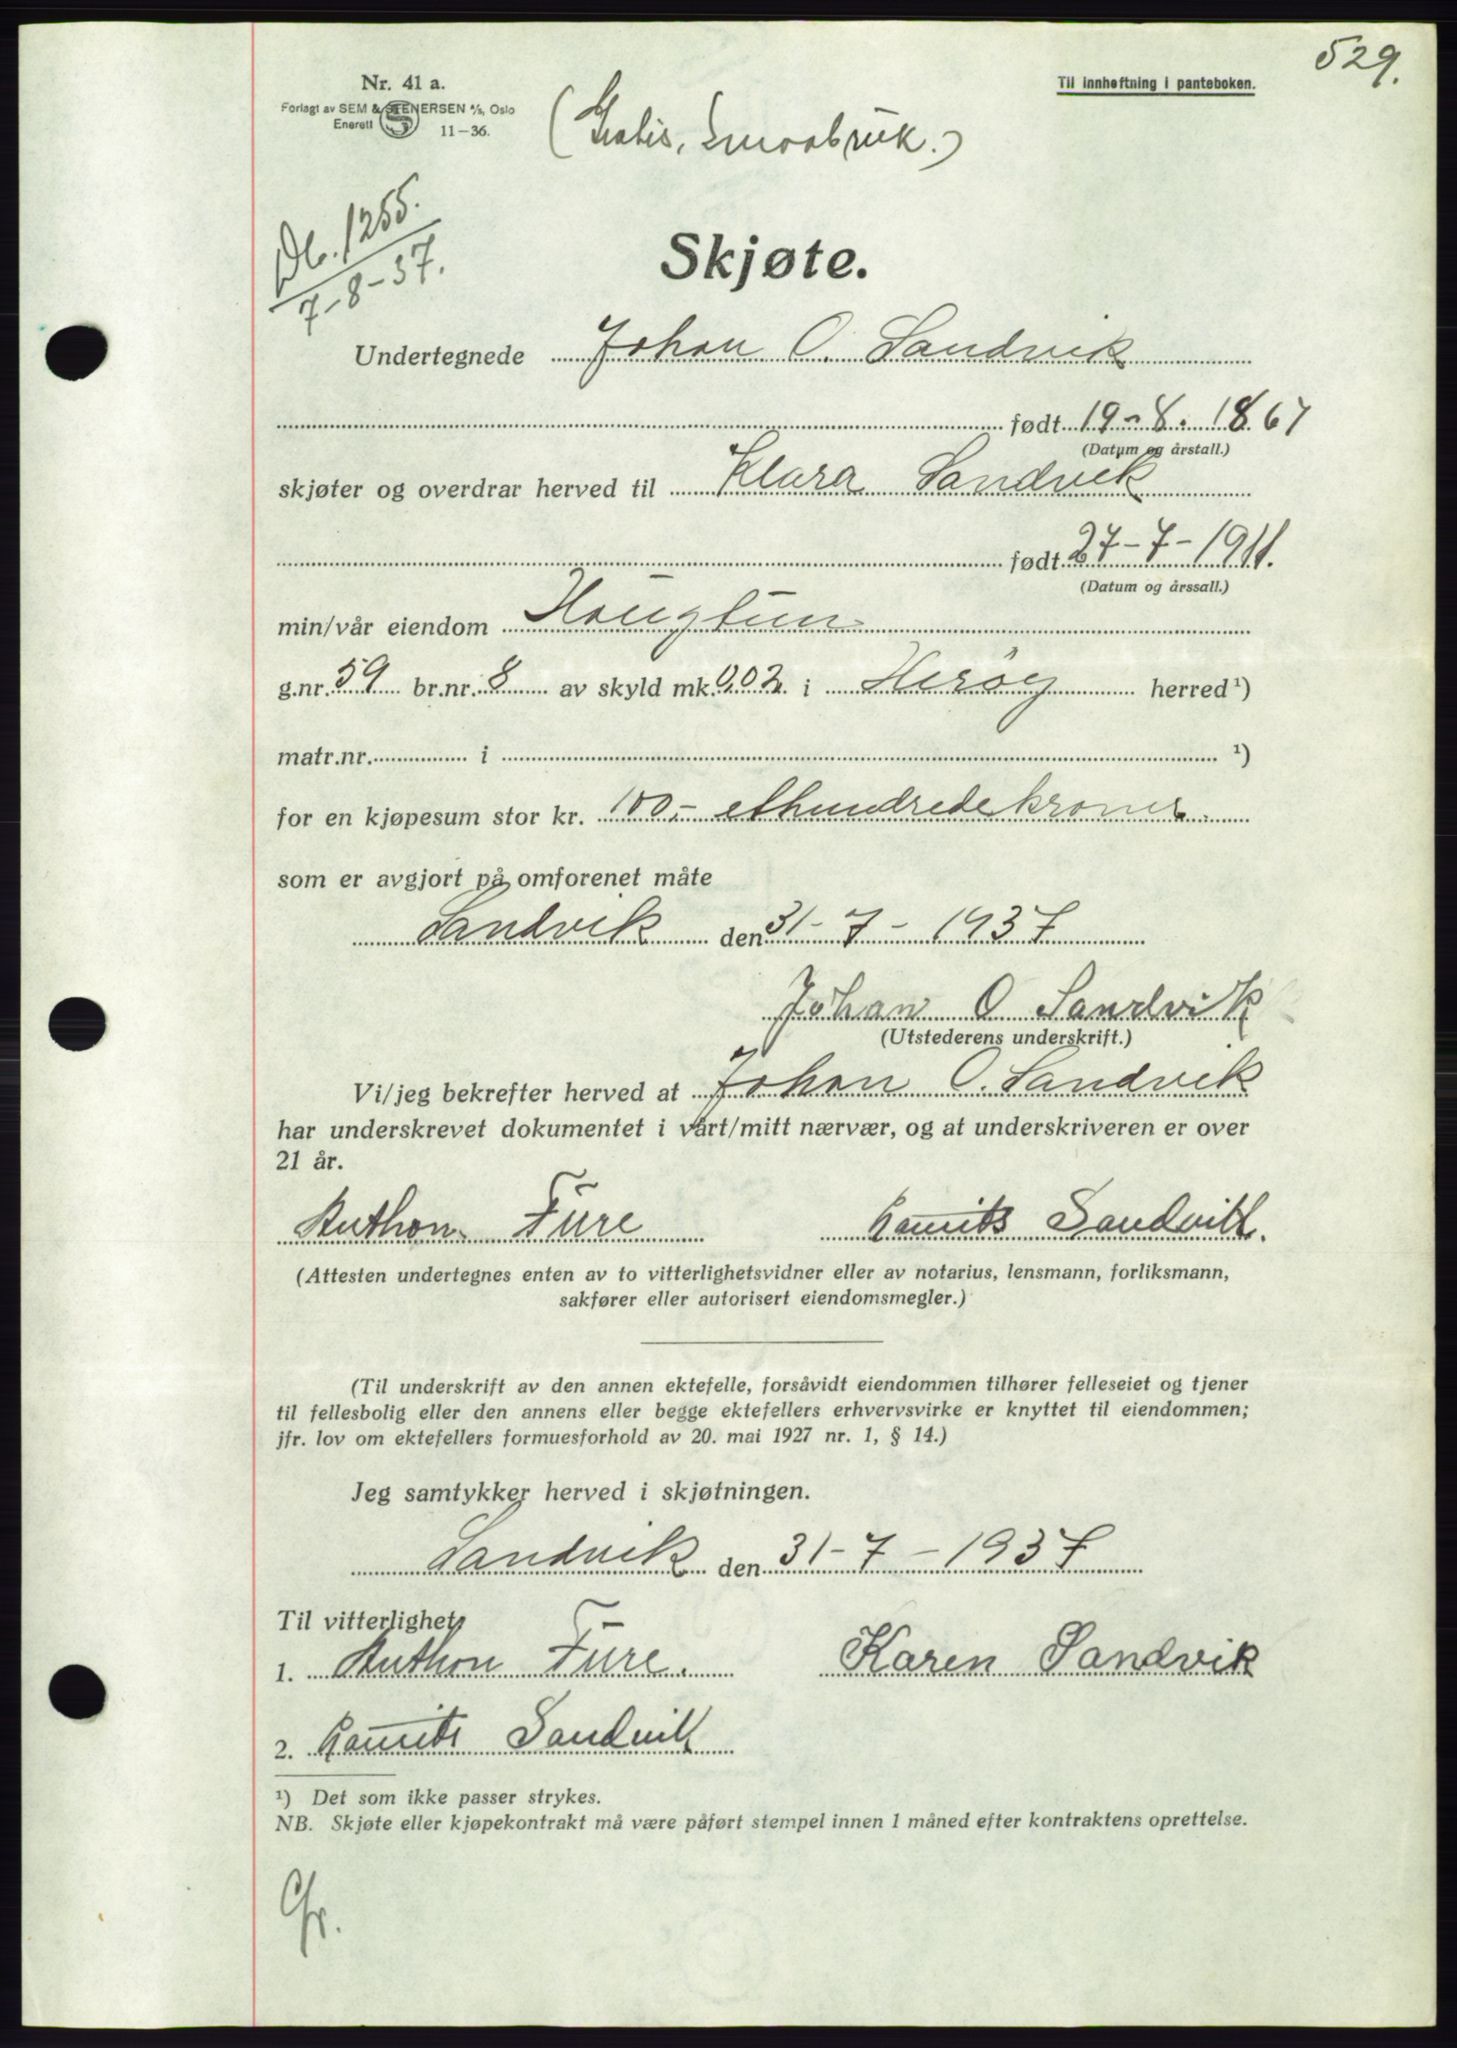 529.
Nr. 41 a.
Til innheftning i panteboken.
Forlagt av SEM & STENERSEN A/S, Oslo
Enerett 11-36.
(Gratis, Smaabruk.)
Db. 1255.
7-8-37.
Skjøte.
Undertegnede Johan O. Sandvik
født 19-8. 1867
(Datum og årstall.)
skjøter og overdrar herved til Klara Sandvik
født 27-7-1911.
(Datum og årssall.)
min/vår eiendom Haugtun
g.nr. 59 br.nr. 8 av skyld mk. 0,02 i Herøy herred ¹)
matr.nr. i ¹)
for en kjøpesum stor kr. 100,- ethundredekroner
som er avgjort på omforenet måte
Sandvik den 31-7-1937
Johan O Sandvik
(Utstederens underskrift.)
Vi/jeg bekrefter herved at Johan O. Sandvik
har underskrevet dokumentet i vårt/mitt nærvær, og at underskriveren er over
21 år.
Anthon Fure Sandvik.
(Attesten undertegnes enten av to vitterlighetsvidner eller av notarius, lensmann, forliksmann,
sakfører eller autorisert eiendomsmegler.)
(Til underskrift av den annen ektefelle, forsåvidt eiendommen tilhører felleseiet og tjener
til fellesbolig eller den annens eller begge ektefellers erhvervsvirke er knyttet til eiendommen;
jfr. lov om ektefellers formuesforhold av 20. mai 1927 nr. 1, § 14.)
Jeg samtykker herved i skjøtningen.
Sandvik den 31-7-1937
Til vitterlighet
1. Anthon Fure. Karen Sandvik
2. Sandvik
¹) Det som ikke passer strykes.
NB. Skjøte eller kjøpekontrakt må være påført stempel innen 1 måned efter kontraktens oprettelse.